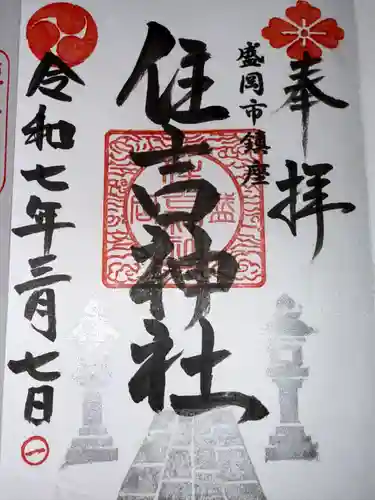 奉拝
盛岡市鎮座
住吉神社
令和七年三月七日
㊀